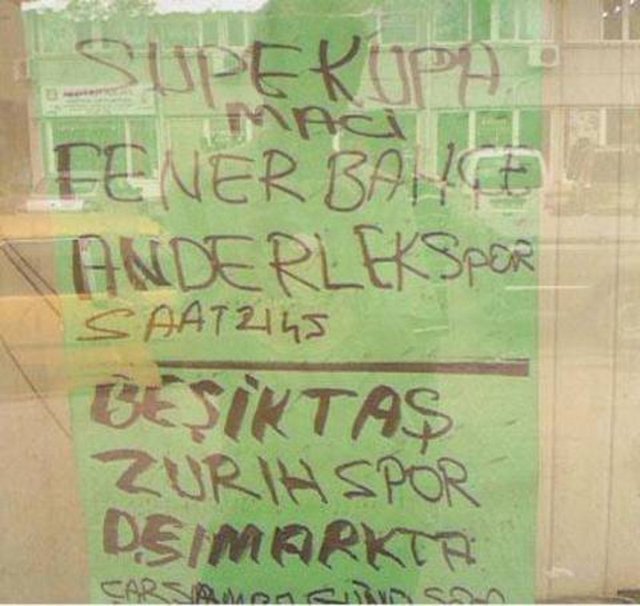 SUPEKUPA
MACI
FENERBAHÇE
ANDERLEKSPOR
SAAT 2145
BEŞİKTAŞ
ZURIHSPOR
DŞIMARKTA